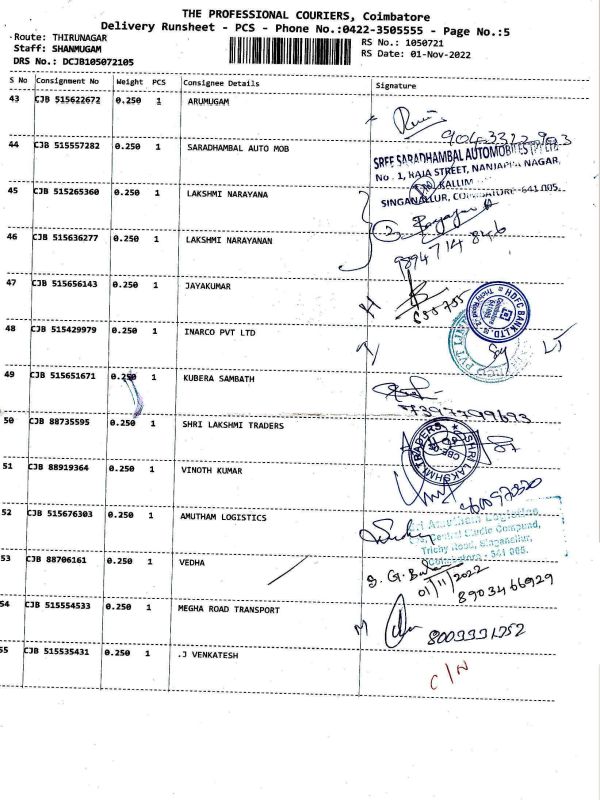 THE PROFESSIONAL COURIERS, Coimbatore
Delivery Runsheet - PCS - Phone No.:0422-3505555 - Page No.:5
Route: THIRUNAGAR
Staff: SHANMUGAM
DRS No.: DCJB105072105
RS No.: 1050721
RS Date: 01-Nov-2022
S No Consignment No Weight PCS Consignee Details Signature
43 CJB 515622672 0.250 1 ARUMUGAM
44 CJB 515557282 0.250 1 SARADHAMBAL AUTO MOB
SREE SARADHAMBAL AUTOMOBILES (P) LTD
No. 1, RAJA STREET, NANJAPPA NAGAR,
SINGANALLUR, COIMBATORE-641 005.
45 CJB 515265360 0.250 1 LAKSHMI NARAYANA
46 CJB 515636277 0.250 1 LAKSHMI NARAYANAN
9894714846
47 CJB 515656143 0.250 1 JAYAKUMAR
650755
HDFC BANK LTD.
Trichy Road
48 CJB 515429979 0.250 1 INARCO PVT LTD
49 CJB 515651671 0.250 1 KUBERA SAMBATH
7397299693
50 CJB 88735595 0.250 1 SHRI LAKSHMI TRADERS
SHRI LAKSHMI TRADERS
51 CJB 88919364 0.250 1 VINOTH KUMAR
52 CJB 515676303 0.250 1 AMUTHAM LOGISTICS
Sri Amutham Logistics
Central Studio Compund,
Trichy Road, Singanallur,
Coimbatore - 641 005.
53 CJB 88706161 0.250 1 VEDHA
01/11/2022
8903466929
54 CJB 515554533 0.250 1 MEGHA ROAD TRANSPORT
M
55 CJB 515535431 0.250 1 .J VENKATESH
C/N